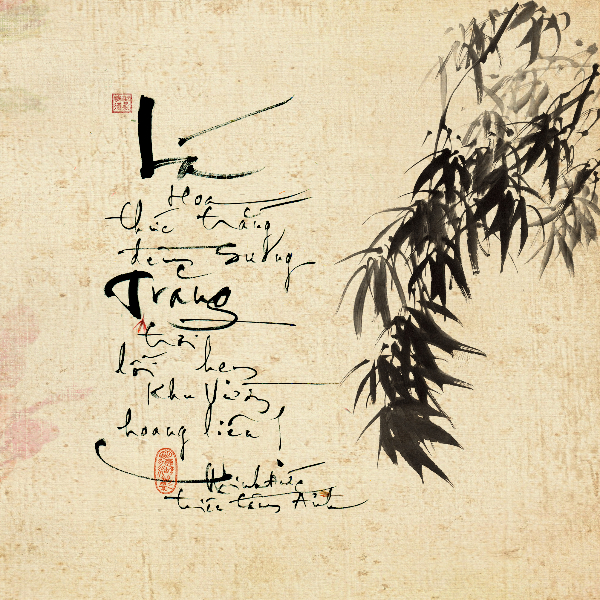 Lá
Hoa
thức trắng
đêm Sương
Trăng
trôi
lối hẹn
Khu Vườn
hoang liêu !
Minh Đức
triều tâm Ảnh